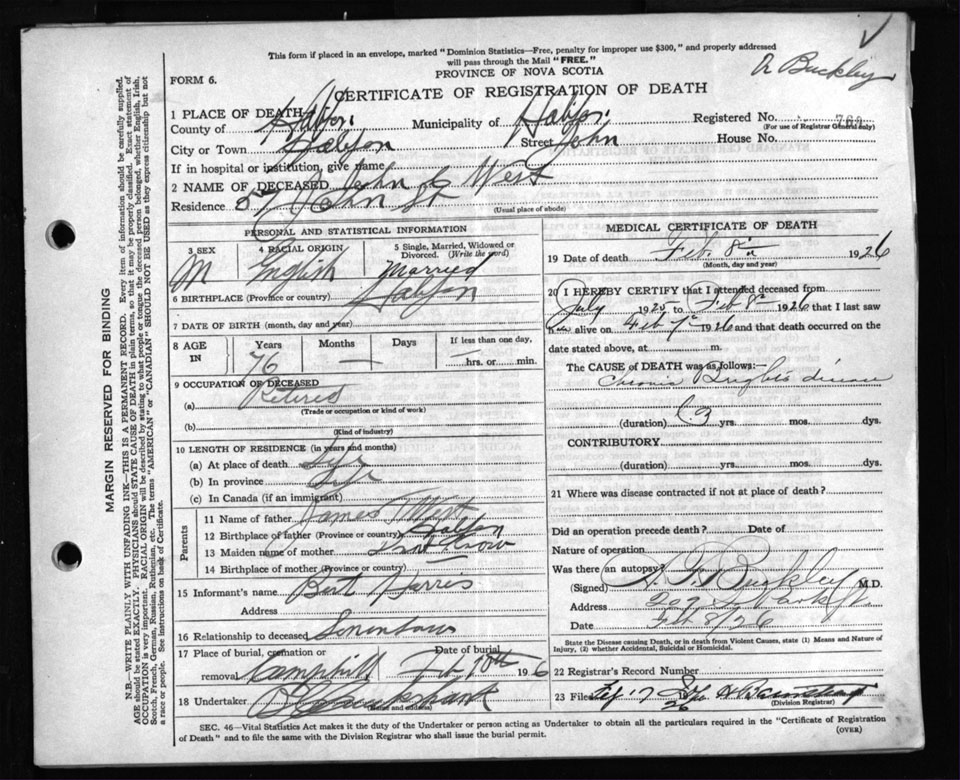 This form if placed in an envelope, marked "Dominion Statistics—Free, penalty for improper use $300," and properly addressed
will pass through the Mail "FREE."
A Buckley
PROVINCE OF NOVA SCOTIA
FORM 6.
CERTIFICATE OF REGISTRATION OF DEATH
1 PLACE OF DEATH
County of Municipality of Registered No. 769
(For use of Registrar General only)
City or Town Street John House No.
If in hospital or institution, give name
2 NAME OF DECEASED John West
Residence 57 John St
(Usual place of abode)
PERSONAL AND STATISTICAL INFORMATION
3 SEX 4 RACIAL ORIGIN 5 Single, Married, Widowed or Divorced. (Write the word)
M English Married
6 BIRTHPLACE (Province or country) Halifax
7 DATE OF BIRTH (month, day and year)
8 AGE IN Years Months Days If less than one day,
76 — hrs. or min.
9 OCCUPATION OF DECEASED
(a) Retired
(Trade or occupation or kind of work)
(b)
(Kind of industry)
10 LENGTH OF RESIDENCE (in years and months)
(a) At place of death
(b) In province
(c) In Canada (if an immigrant)
Parents
11 Name of father James West
12 Birthplace of father (Province or country) Halifax
13 Maiden name of mother Crow
14 Birthplace of mother (Province or country)
15 Informant's name Bert Harris
Address
16 Relationship to deceased Son in law
17 Place of burial, cremation or removal Date of burial
Camphill Feb 10th 1926
18 Undertaker
(Name and address)
MEDICAL CERTIFICATE OF DEATH
19 Date of death Feb 8th 1926
(Month, day and year)
20 I HEREBY CERTIFY that I attended deceased from
July 1925 to Feb 8th 1926 that I last saw
him alive on Feb 7th 1926 and that death occurred on the
date stated above, at m.
The CAUSE OF DEATH was as follows:—
Chronic Bright's disease
(duration) 3 yrs. mos. dys.
CONTRIBUTORY
(duration) yrs. mos. dys.
21 Where was disease contracted if not at place of death?
Did an operation precede death? Date of
Nature of operation
Was there an autopsy?
(Signed) Buckley M.D.
Address
Date Feb 8/26
State the Disease causing Death, or in death from Violent Causes, state (1) Means and Nature of
Injury, (2) whether Accidental, Suicidal or Homicidal.
22 Registrar's Record Number
23 Filed
(Division Registrar)
SEC. 46—Vital Statistics Act makes it the duty of the Undertaker or person acting as Undertaker to obtain all the particulars required in the "Certificate of Registration
of Death" and to file the same with the Division Registrar who shall issue the burial permit.
(OVER)
MARGIN RESERVED FOR BINDING
N.B.—WRITE PLAINLY WITH UNFADING INK—THIS IS A PERMANENT RECORD. Every item of information should be carefully supplied.
AGE should be stated EXACTLY. PHYSICIANS should STATE CAUSE OF DEATH in plain terms, so that it may be properly classified. Exact statement of
OCCUPATION is very important. RACIAL ORIGIN will be described by stating to what people or tongue the deceased person belonged, whether English, Irish,
Scotch, French, German, Russian, Ruthenian, etc. The terms "AMERICAN" or "CANADIAN" SHOULD NOT BE USED as they express citizenship but not
a race or people. See instructions on back of Certificate.